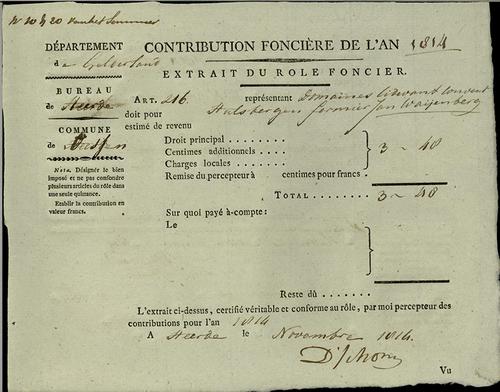 No 20 h 20
DÉPARTEMENT
de Gelderland
CONTRIBUTION FONCIÈRE DE L'AN 1814
EXTRAIT DU ROLE FONCIER.
BUREAU
de Heerde
COMMUNE
de
Nota. Désigner le bien
imposé et ne pas confondre
plusieurs articles du rôle dans
une seule quittance.
Etablir la contribution en
valeur francs.
ART. 216. représentant Domaines Convent
doit pour Hulsbergen fermier Jan
estimé de revenu
Droit principal . . . . . . . .
Centimes additionnels . . .
Charges locales . . . . . . .
3 - 48
Remise du percepteur à centimes pour francs.
TOTAL . . . . . . . . 3 - 48
Sur quoi payé à-compte:
Le
Reste dû . . . . . . .
L'extrait ci-dessus, certifié véritable et conforme au rôle, par moi percepteur des
contributions pour l'an 1814
A Heerde le Novembre 1814.
Vu